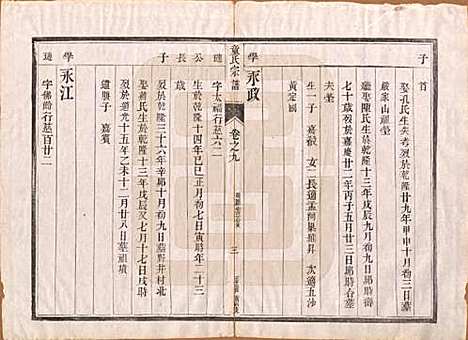 子 首
娶孔氏生失考歿於乾隆廿九年甲申十月初三日墓
嚴家山祖塋
繼娶陳氏生於乾隆十三年戊辰九月初九日酉時壽
七十歲歿於嘉慶廿二年丙子五月廿三日酉時合墓
夫塋
生一子 嘉猷 女二長適孟河巢雍昇 次適五沙
黃定國
學 永政
童氏宗譜 卷之九 三
璉 公長子
字太福行慈六二
生於乾隆十四年己巳正月初七日寅時年二十三
歿於乾隆三十六年辛卯十月初九日墓對井村北
娶蔣氏生於乾隆十三年戊辰又七月十七日戌時
歿於道光十五年乙未十二月廿八日墓祖墳
遺腹子 嘉賓
學 永江
璉 字佛齡行慈百廿二